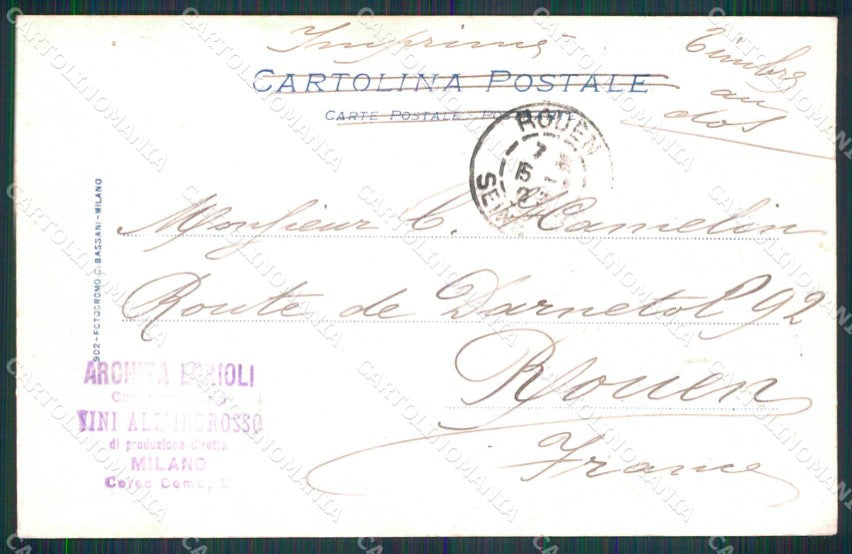 Imprimé
Timbre
au
dos
CARTOLINA POSTALE
CARTE POSTALE - POSTKARTE
ROUEN
7
5
SEINE
902 - FOTOCROMO C. BASSANI - MILANO
Monsieur C. Hamelin
Route de Darnetal 92
Rouen
France
ARCHITA BORIOLI
VINI ALL'INGROSSO
di produzione diretta
MILANO
Corso Como,
CARTOLINOMANIA